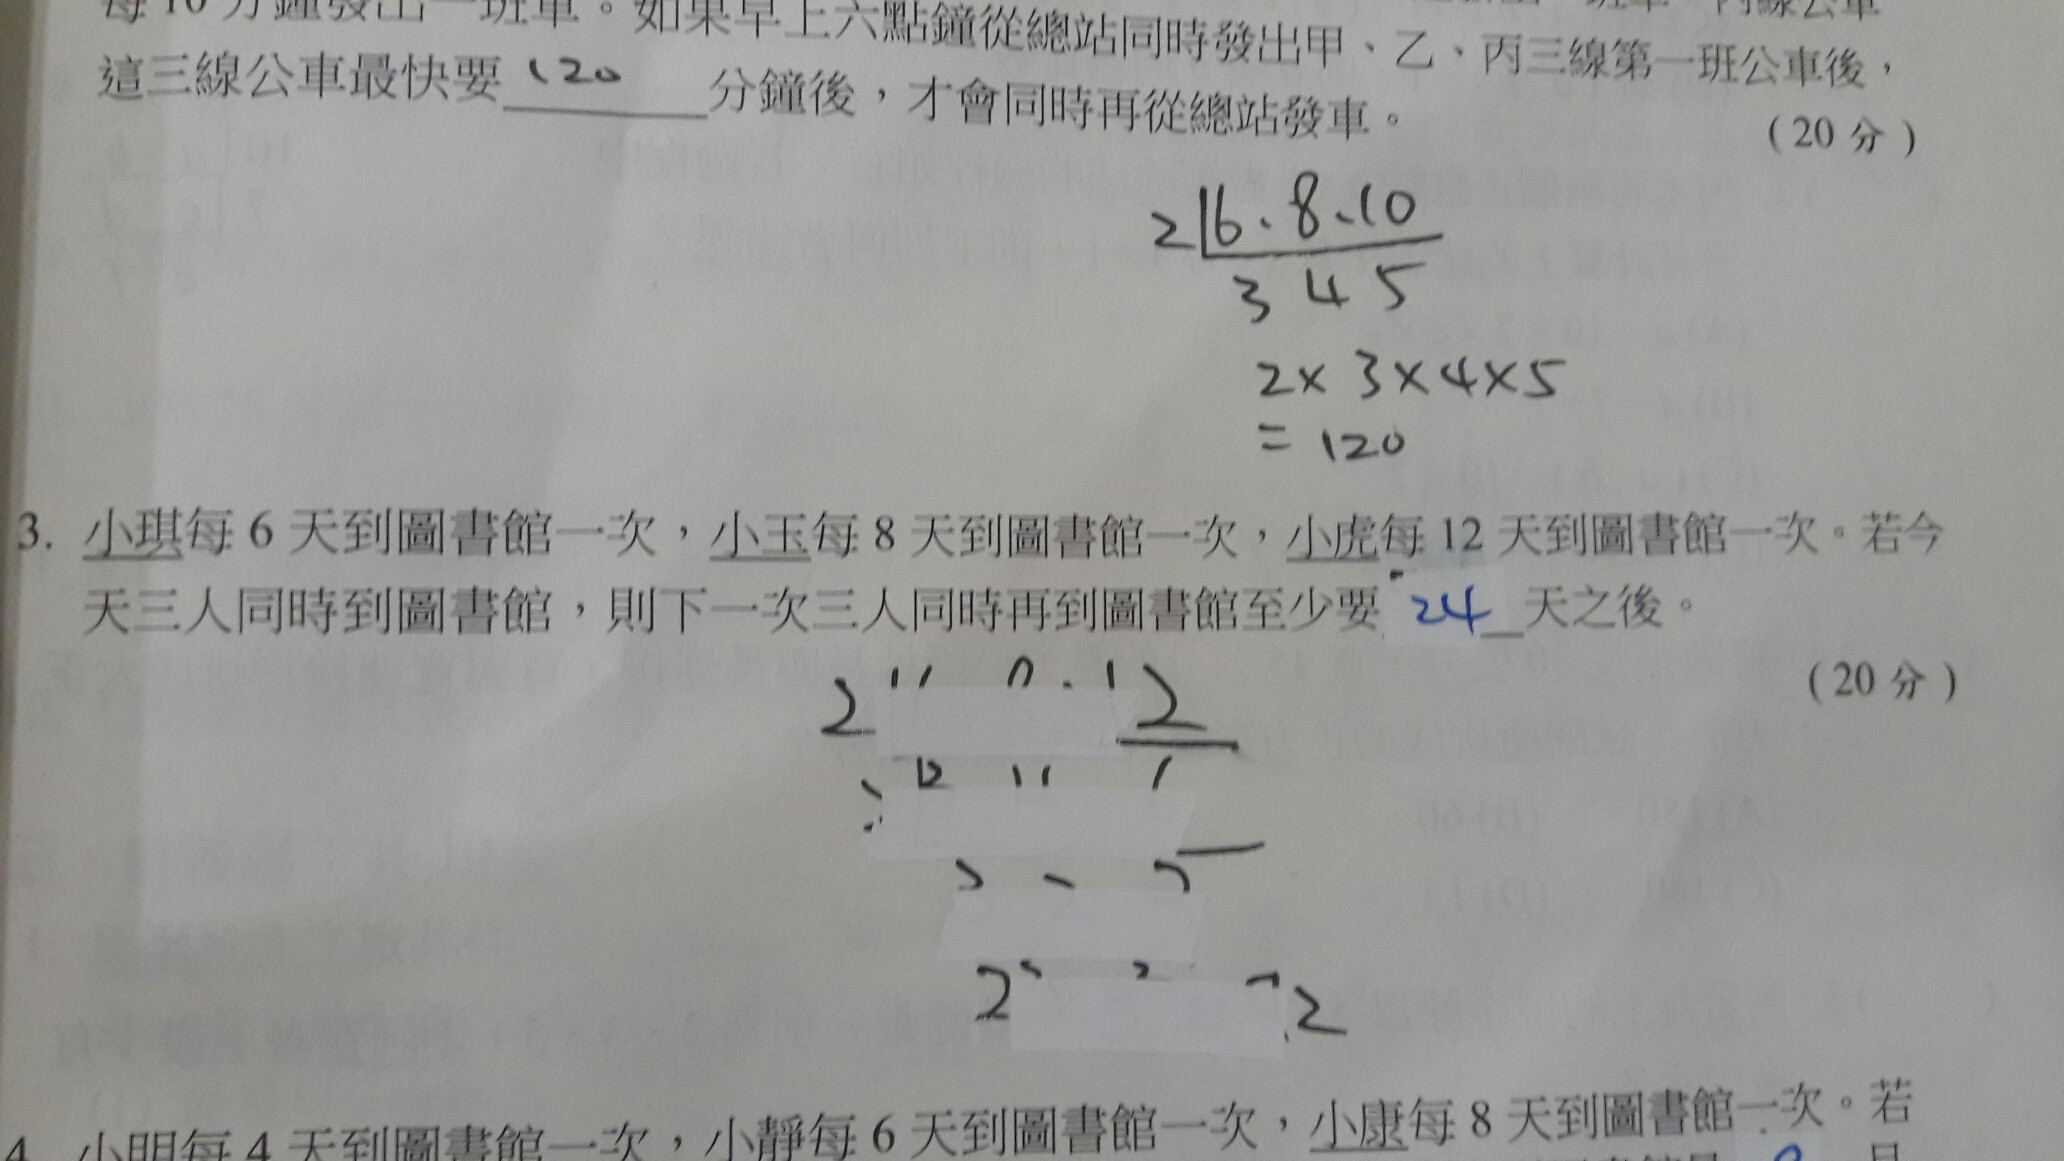 每 10 分鐘發出一班車。如果早上六點鐘從總站同時發出甲、乙、丙三線第一班公車後，
這三線公車最快要 120 分鐘後，才會同時再從總站發車。
(20 分)
2 6.8.10
3 4 5
2×3×4×5
=120
3. 小琪每 6 天到圖書館一次，小玉每 8 天到圖書館一次，小虎每 12 天到圖書館一次。若今
天三人同時到圖書館，則下一次三人同時再到圖書館至少要 24 天之後。
(20 分)
2 2
2 2
4. 小明每 4 天到圖書館一次，小靜每 6 天到圖書館一次，小康每 8 天到圖書館一次。若